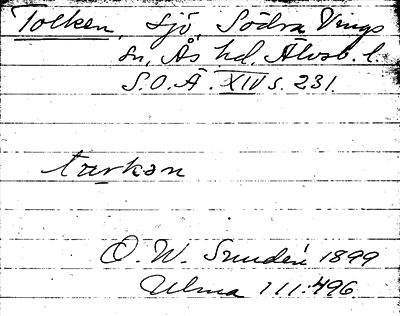 Tolken, sjö, Södra Vings
sn, Ås hd. Älvsb. l.
S.O.Ä. XIV s. 231.
O. W. Sundén 1899
Ulma 111:496.